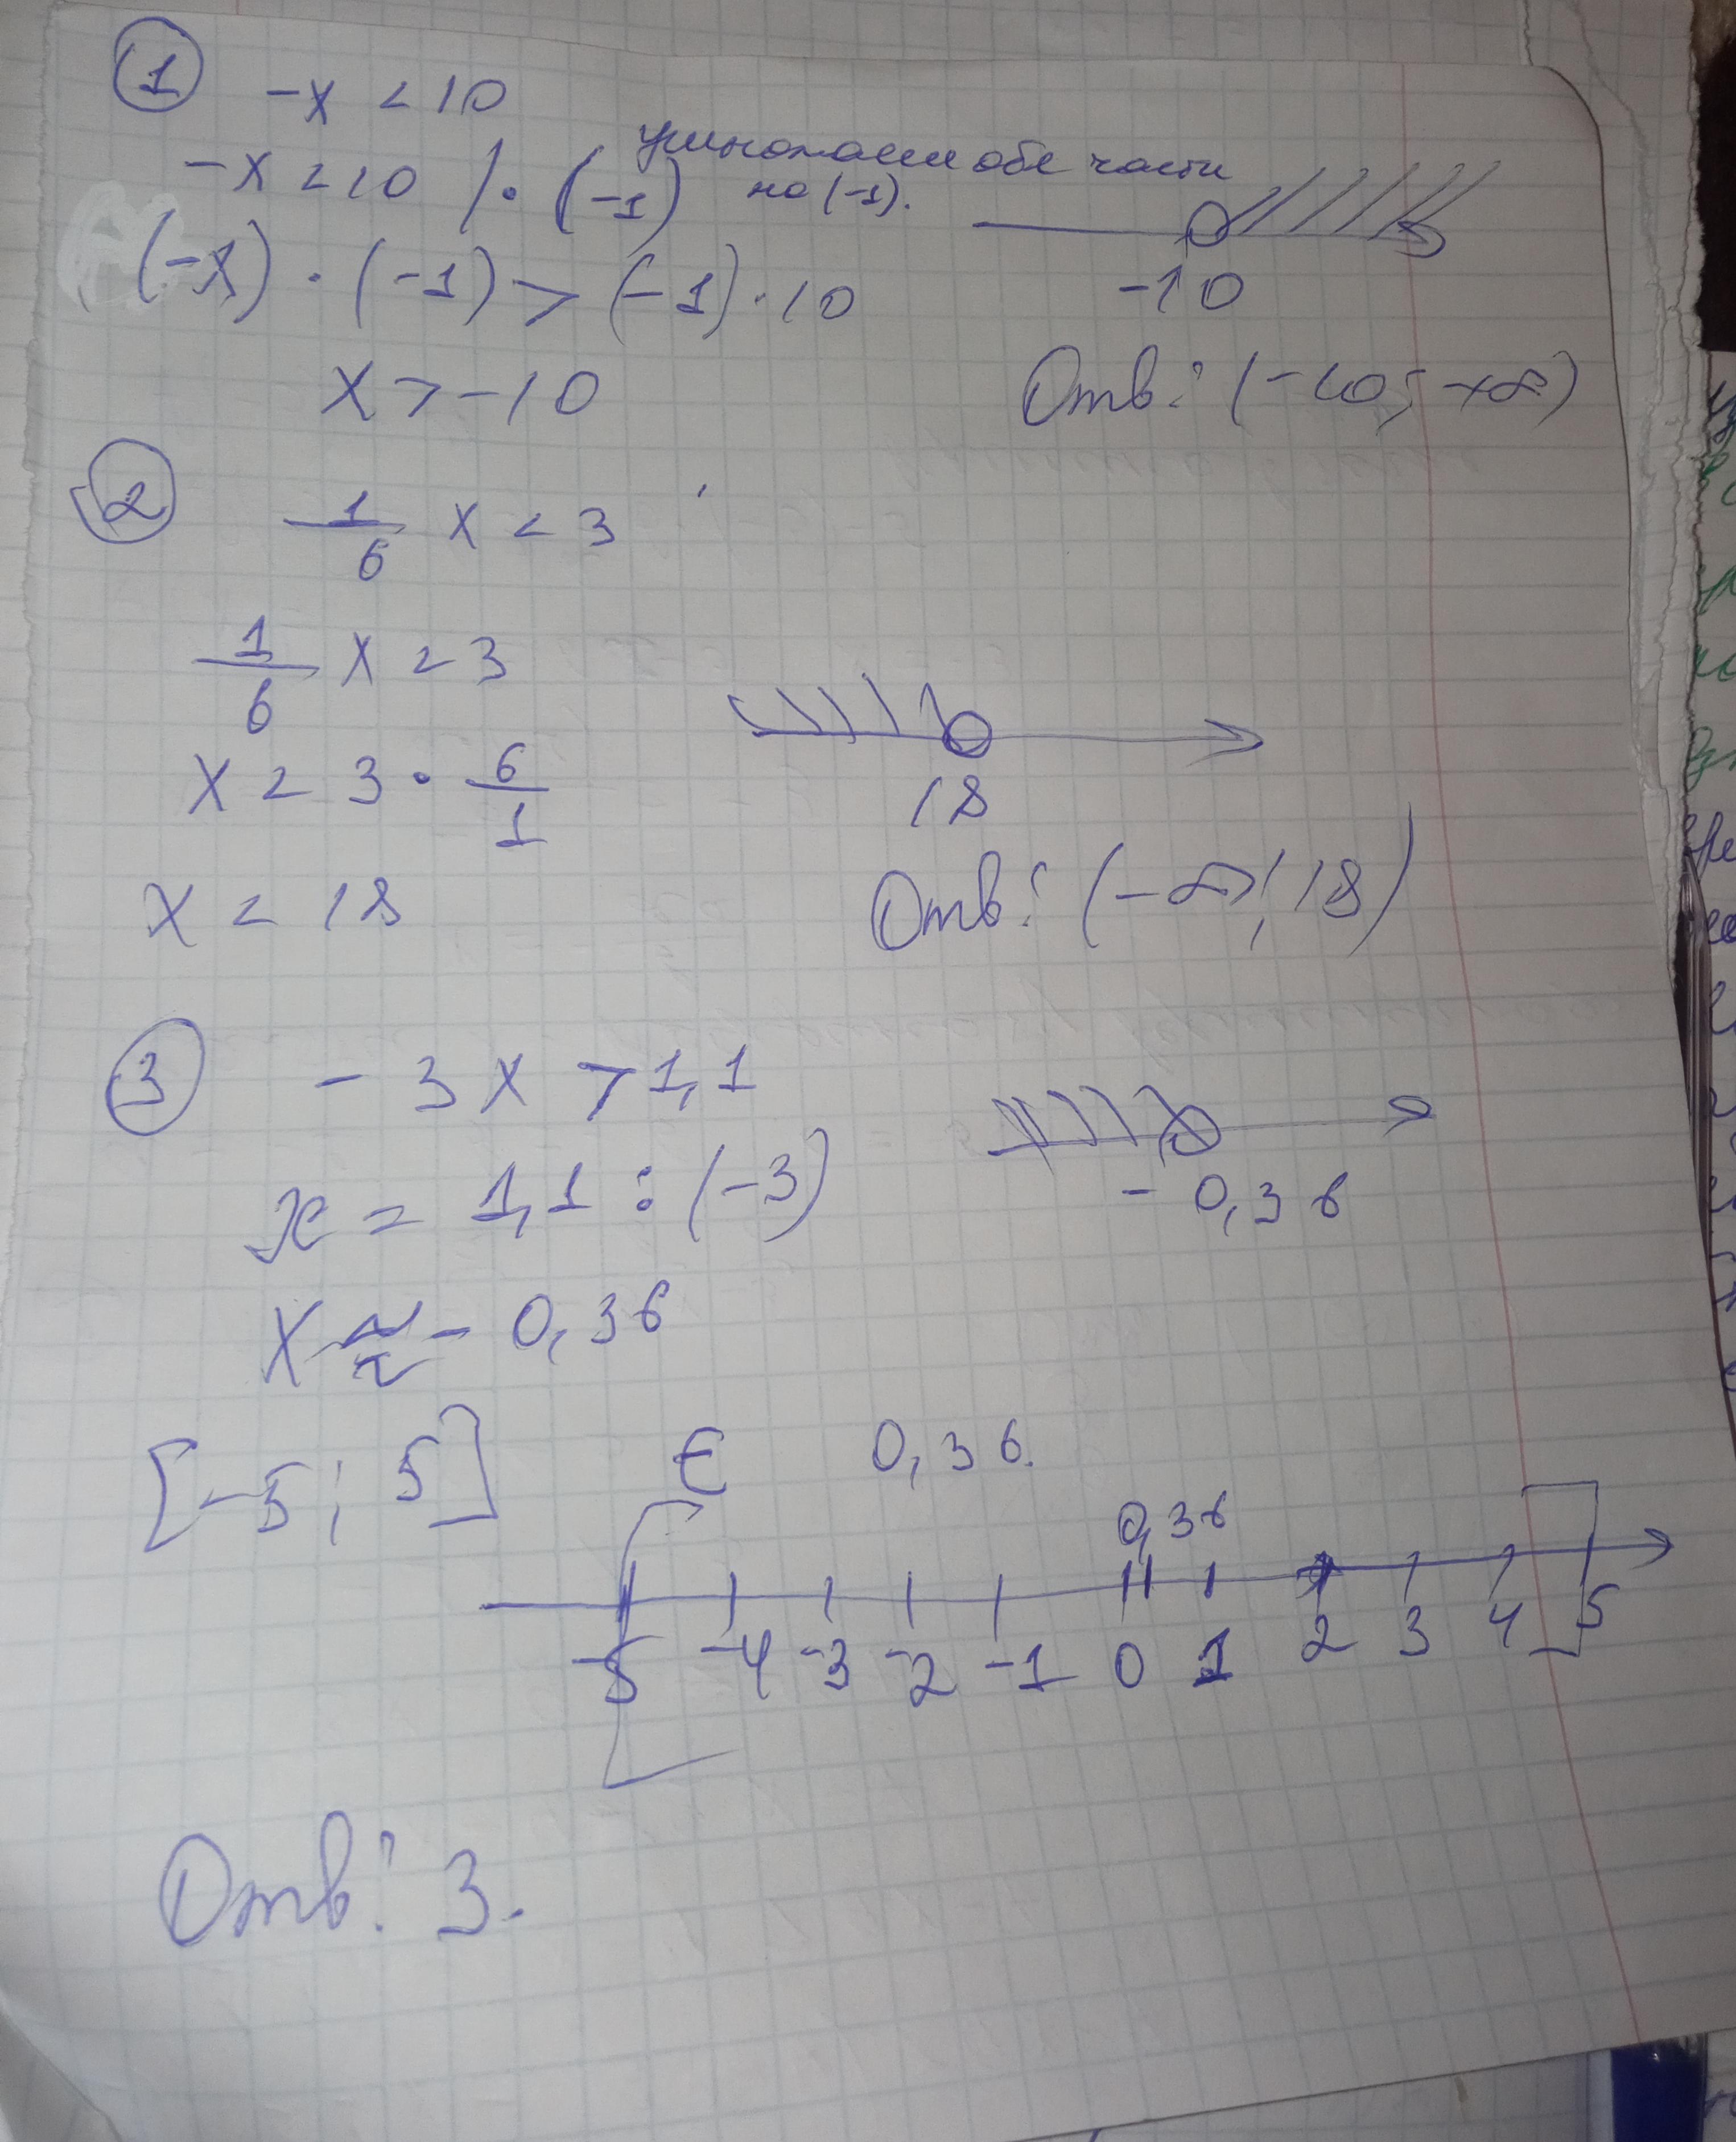 1
-x < 10
-x < 10 / · (-1) умножаем обе части
на (-1).
(-x) · (-1) > (-1) · 10
-10
x > -10
Отв: (-10; +∞)
2
1/6 x < 3
1/6 x < 3
x < 3 · 6/1
18
x < 18
Отв: (-∞; 18)
3
- 3x > 1,1
x = 1,1 : (-3)
- 0,36
x ≈ - 0,36
[-5; 5] ∈ 0,36.
0,36
-5 -4 -3 -2 -1 0 1 2 3 4 5
Отв: 3.